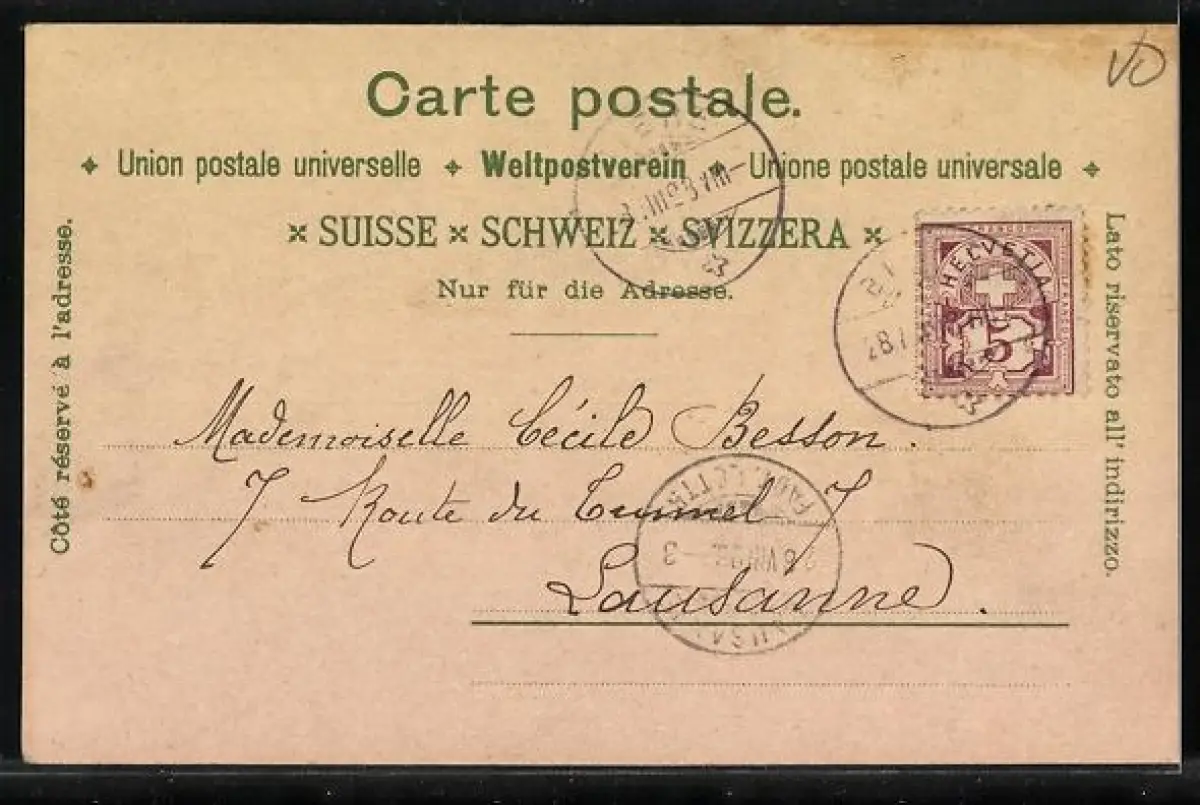 VD
Carte postale.
Union postale universelle Weltpostverein Unione postale universale
SUISSE × SCHWEIZ × SVIZZERA
Nur für die Adresse.
Côté réservé à l'adresse.
Lato riservato all' indirizzo.
HELVETIA
FRANCO
5
Mademoiselle Cécile Besson.
7 Route du Tunnel 7
Lausanne.
3